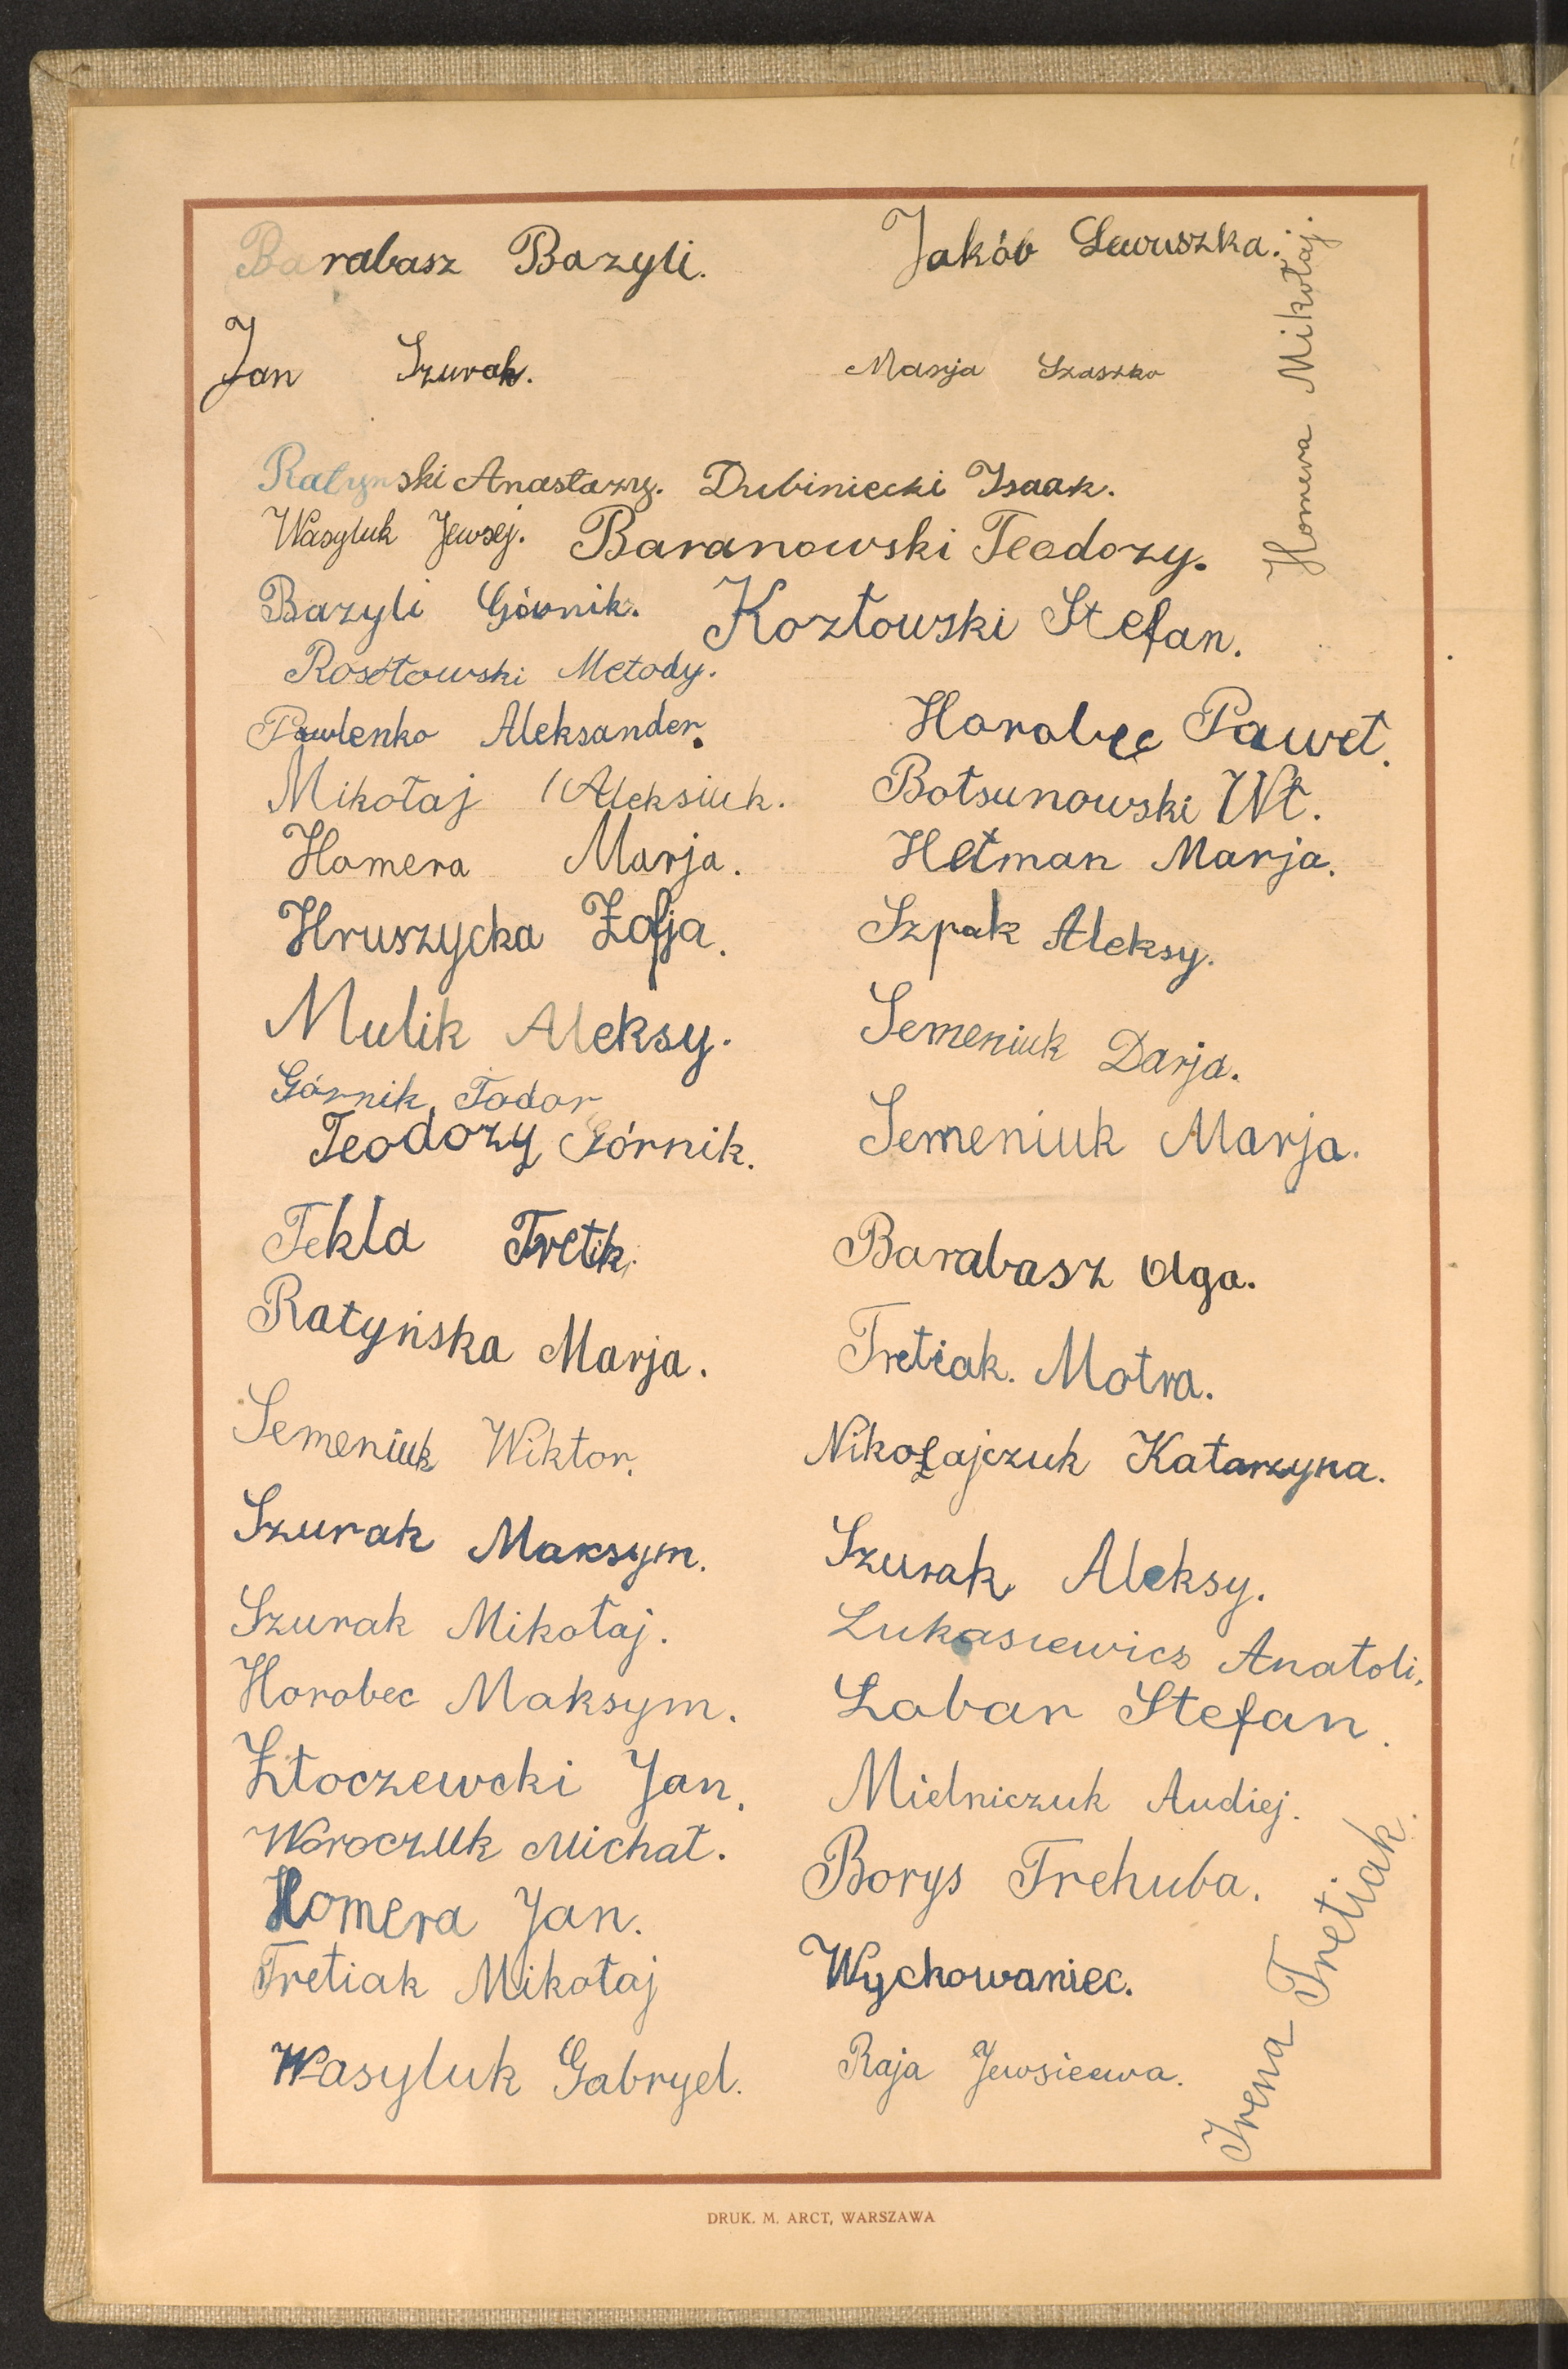 Barabasz Bazyli.
Jakób Lewuszka.
Homera Mikołaj.
Jan Szurak.
Marja Szaszko
Ratynski Anastazy. Dubiniecki Isaak.
Wasyluk Jewsej. Baranowski Teodozy.
Bazyli Górnik. Kozłowski Stefan.
Rosłowski Metody.
Pawlenko Aleksander.
Horobec Paweł.
Mikołaj Aleksiuk.
Botsunowski Wł.
Homera Marja.
Hetman Marja.
Hruszycka Zofja.
Szpak Aleksy.
Mulik Aleksy.
Semeniuk Darja.
Górnik, Todor
Teodozy Górnik.
Semeniuk Marja.
Tekla Tretik.
Barabasz Olga.
Ratyńska Marja.
Tretiak. Motra.
Semeniuk Wiktor.
Nikołajczuk Katarzyna.
Szurak Maksym.
Szurak Aleksy.
Szurak Mikołaj.
Łukasiewicz Anatoli.
Horobec Maksym.
Łabar Stefan.
Złoczewcki Jan.
Mielniczuk Audiej.
Woroczuk Michał.
Borys Trehuba.
Homera Jan.
Tretiak Mikołaj
Wychowaniec.
Wasyluk Gabryel.
Raja Jewsieewa.
Irena Tretiak.
DRUK. M. ARCT, WARSZAWA